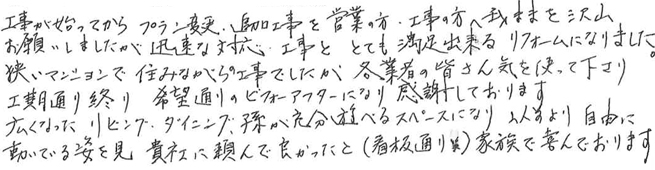 工事が始ってから プラン変更、追加工事を営業の方・工事の方へ我ままを沢山
お願いしましたが 迅速な対応、工事と とても満足出来るリフォームになりました。
狭いマンションで住みながらの工事でしたが 各業者の皆さん気を使って下さり
工期通り終り 希望通りのビフォーアフターになり感謝しております
広くなった リビング・ダイニング、孫が充分遊べるスペースになり より自由に
動いている姿を見 貴社に頼んで良かったと(看板通り)家族で喜んでおります